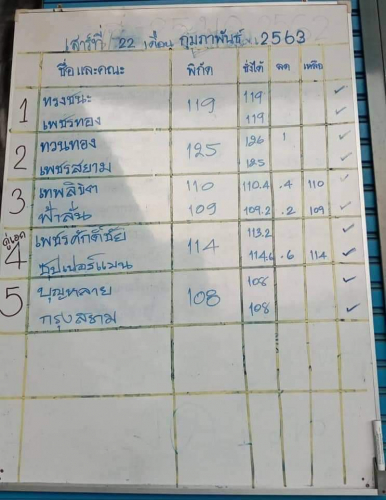 เสาร์ที่ 22 เดือน กุมภาพันธ์ 2563
ชื่อและคณะ พิกัด ชั่งได้ ลด เหลือ
1 ทรงชนะ 119 119 ✓
เพชรทอง 119 ✓
2 ทวนทอง 125 126 1 ✓
เพชรสยาม 125 ✓
3 เทพลิขิต 110 110.4 .4 110 ✓
ฟ้าลั่น 109 109.2 .2 109 ✓
คู่เอก 4 เพชรศักดิ์ชัย 114 113.2 ✓
ซุปเปอร์แมน 114.6 .6 114 ✓
5 บุญหลาย 108 108 ✓
กรุงสยาม 108 ✓